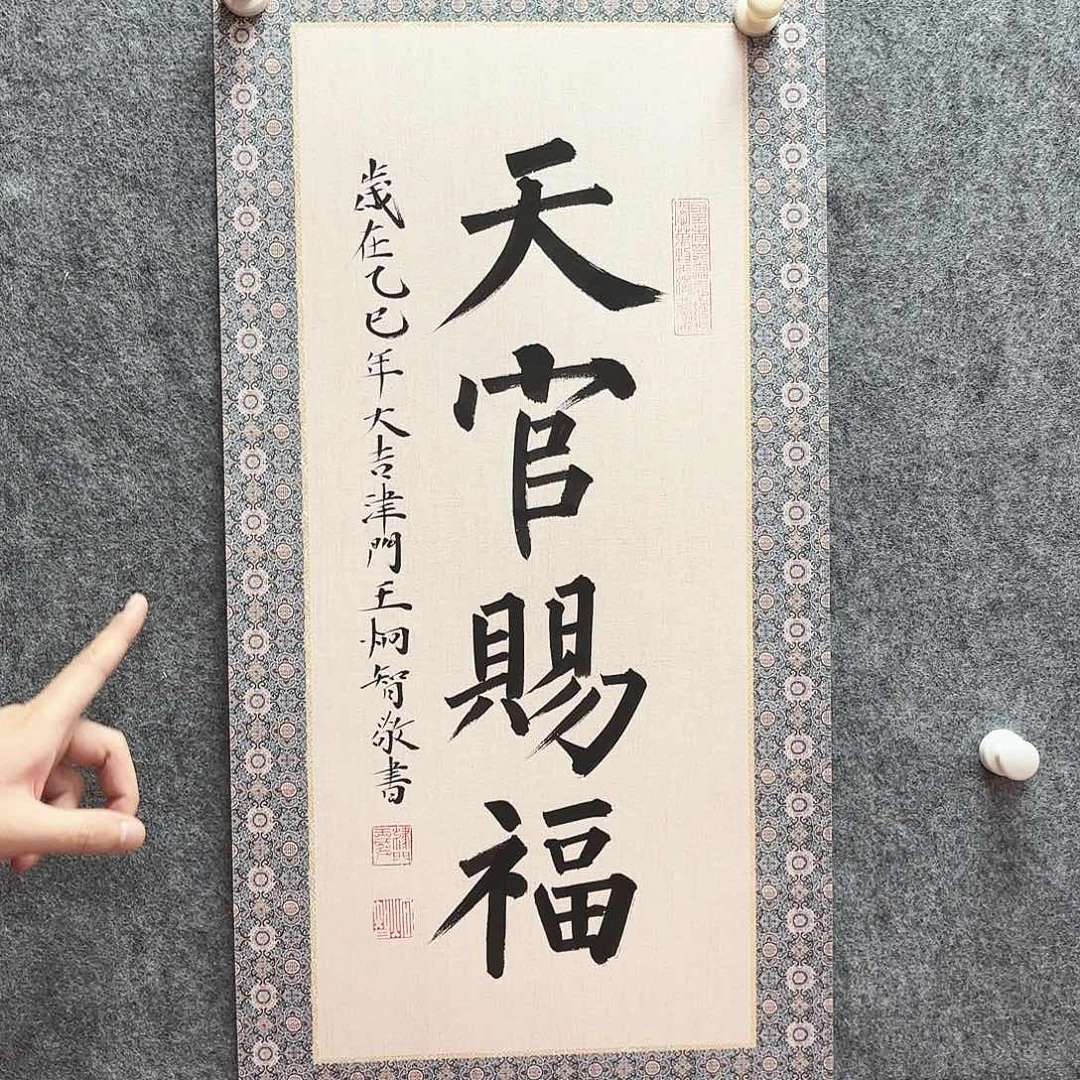 天官賜福
歲在乙巳年大吉津門王炯智敬書